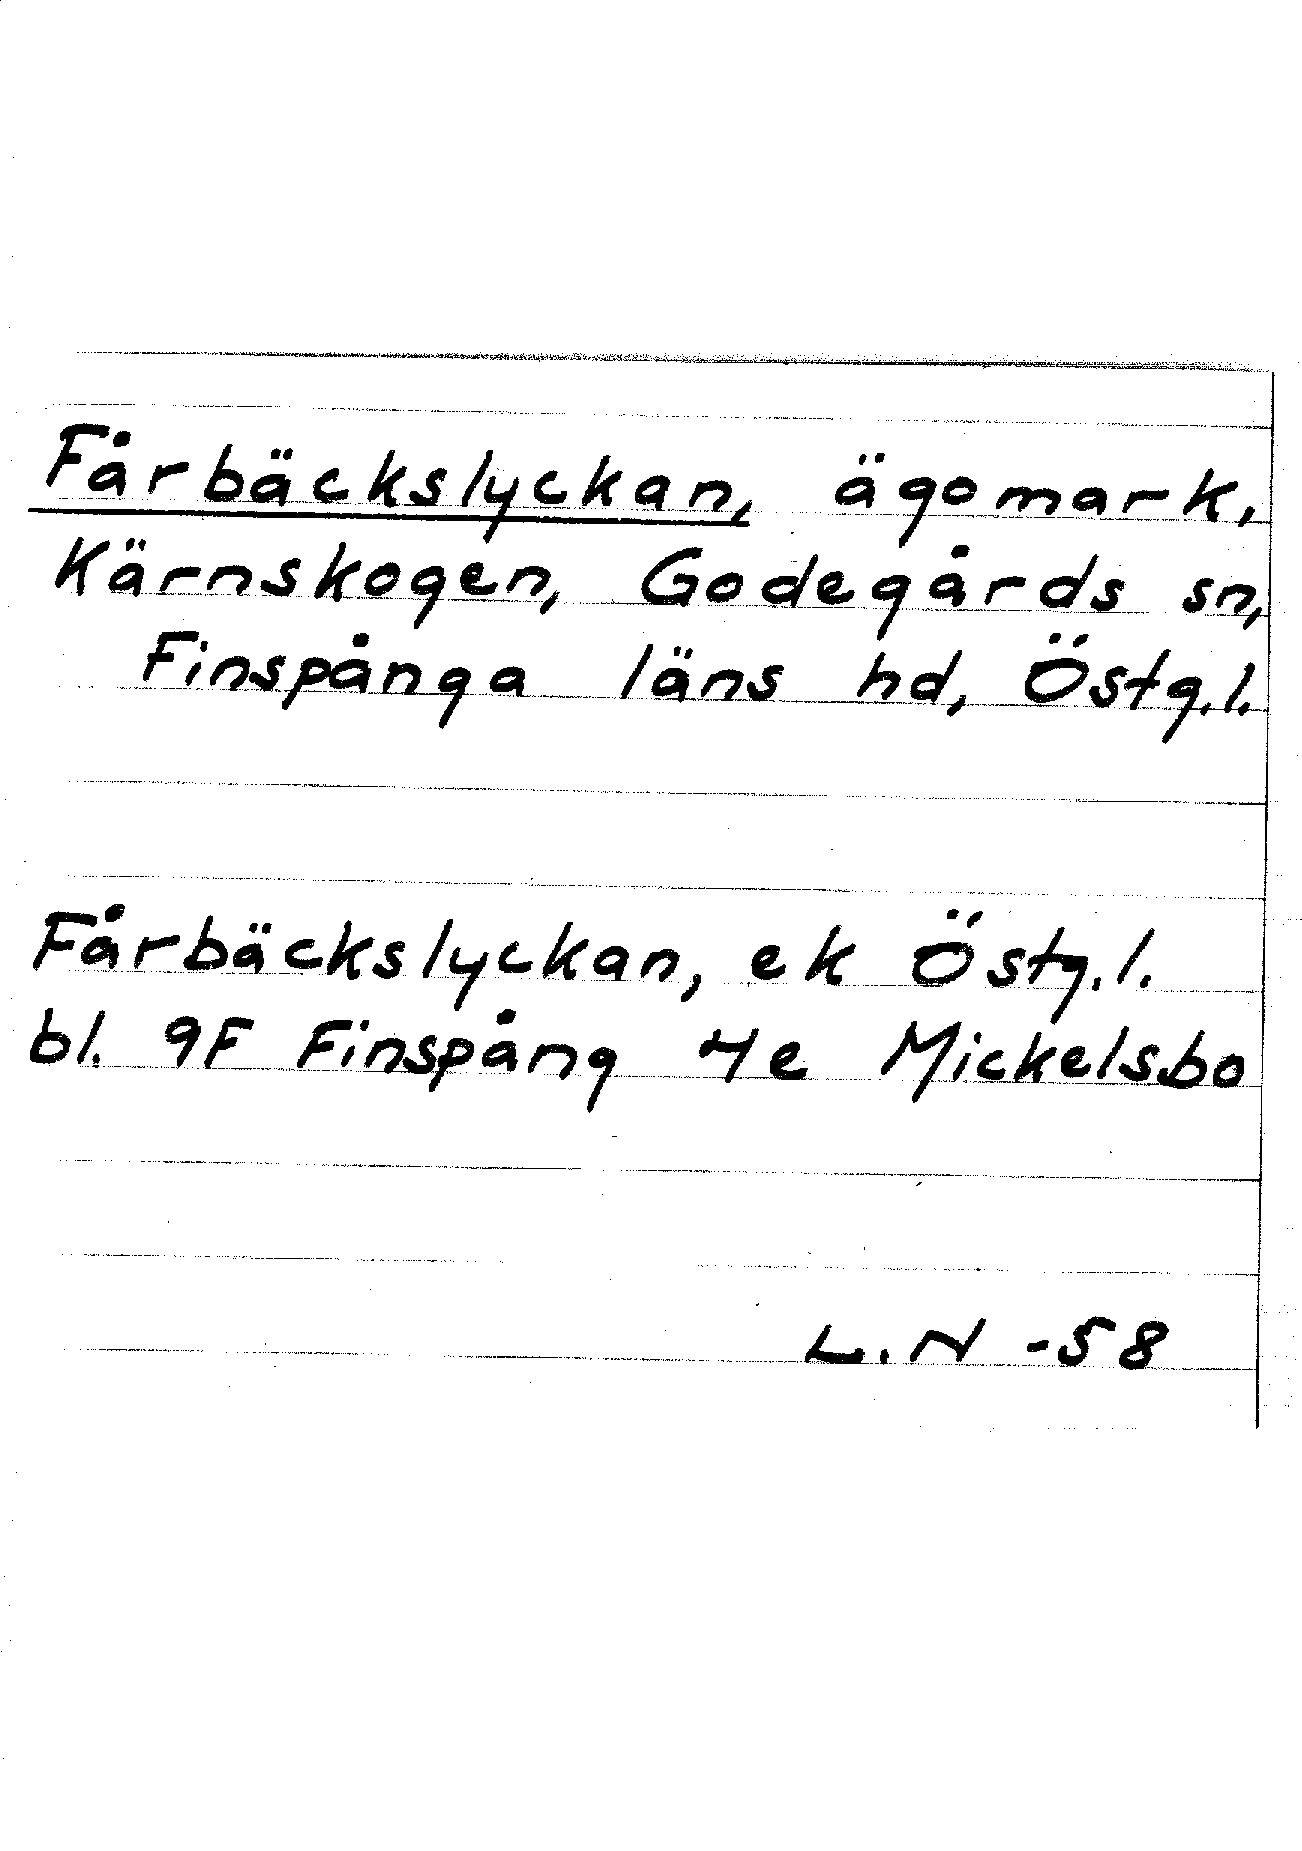 Fårbäckslyckan, ägomark,
Kärnskogen, Godegårds sn,
Finspånga läns hd, Östg.l.
Fårbäckslyckan, ek Östg.l.
bl. 9F Finspång 4e Mickelsbo
L.N -58